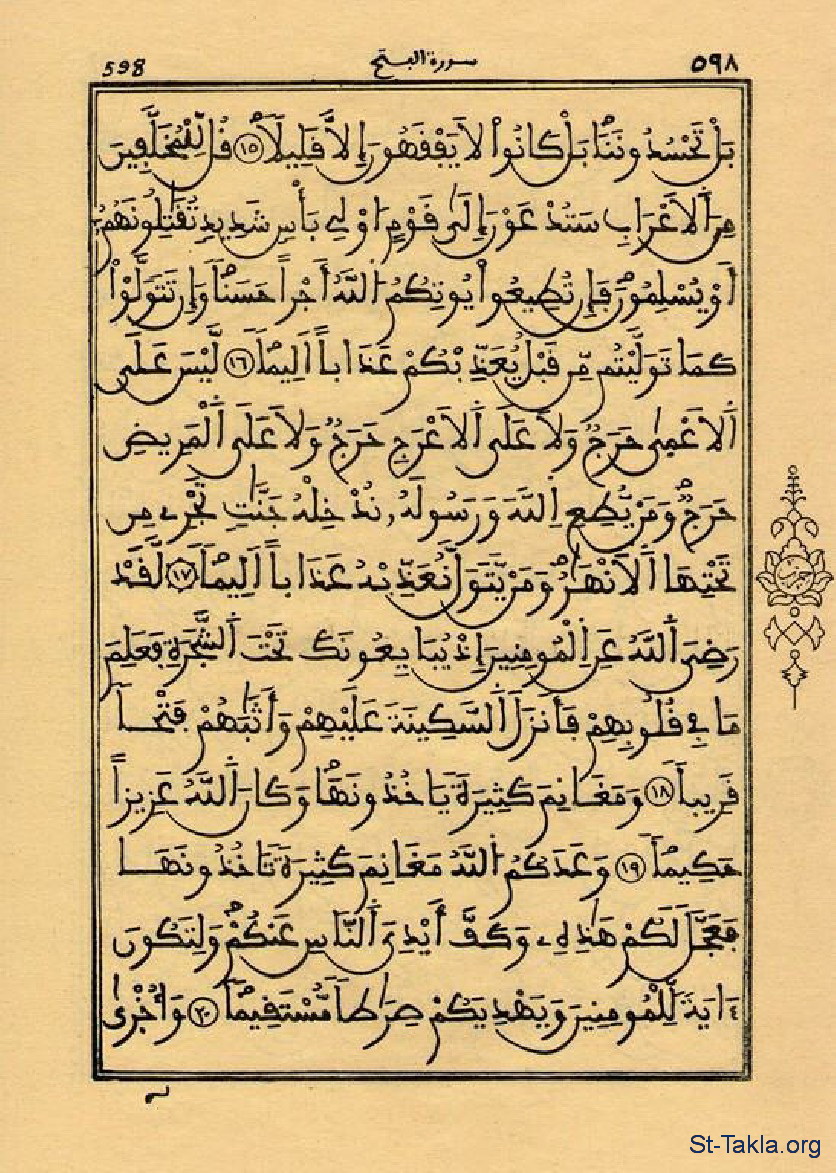 598 سورة الفتح ٥٩٨
بَلْ تَحْسُدُونَنَا بَلْ كَانُواْ لاَ يَفْقَهُونَ إِلاَّ قَلِيلاً ١٥ قُل لِّلْمُخَلَّفِينَ
مِنَ اَلاَعْرَابِ سَتُدْعَوْنَ إِلَىٰ قَوْمٍ اوْلِے بَأْسٍ شَدِيدٍ تُقَٰتِلُونَهُمُۥ
أَوْ يُسْلِمُونَ فَإِن تُطِيعُواْ يُوتِكُمُ اُللَّهُ أَجْراً حَسَناً وَإِن تَتَوَلَّوْاْ
كَمَا تَوَلَّيْتُم مِّن قَبْلُ يُعَذِّبْكُمْ عَذَاباً اَلِيماً ١٦ لَّيْسَ عَلَى
اَلاَعْمِىٰ حَرَجٌ وَلاَ عَلَى اَلاَعْرَجِ حَرَجٌ وَلاَ عَلَى اَلْمَرِيضِ
حَرَجٌ وَمَنْ يُّطِعِ اِللَّهَ وَرَسُولَهُۥ نُدْخِلْهُ جَنَّٰتٍ تَجْرِے مِن
تَحْتِهَا اَلاَنْهَٰرُ وَمَنْ يَّتَوَلَّ نُعَذِّبْهُ عَذَاباً اَلِيماً ١٧ لَّقَدْ
رَضِىَ اَللَّهُ عَنِ اِلْمُومِنِينَ إِذْ يُبَايِعُونَكَ تَحْتَ اَلشَّجَرَةِ فَعَلِمَ
مَا فِے قُلُوبِهِمْ فَأَنزَلَ اَلسَّكِينَةَ عَلَيْهِمْ وَأَثَٰبَهُمْ فَتْحاً
قَرِيباً ١٨ وَمَغَانِمَ كَثِيرَةً يَاخُذُونَهَا وَكَانَ اَللَّهُ عَزِيزاً
حَكِيماً ١٩ وَعَدَكُمُ اُللَّهُ مَغَانِمَ كَثِيرَةً تَاخُذُونَهَا
فَعَجَّلَ لَكُمْ هَٰذِهِۦ وَكَفَّ أَيْدِىَ اَلنَّاسِ عَنكُمْ وَلِتَكُونَ
ءَايَةً لِّلْمُومِنِينَ وَيَهْدِيَكُمْ صِرَٰطاً مُّسْتَقِيماً ٢٠ وَأُخْرىٰ
St-Takla.org